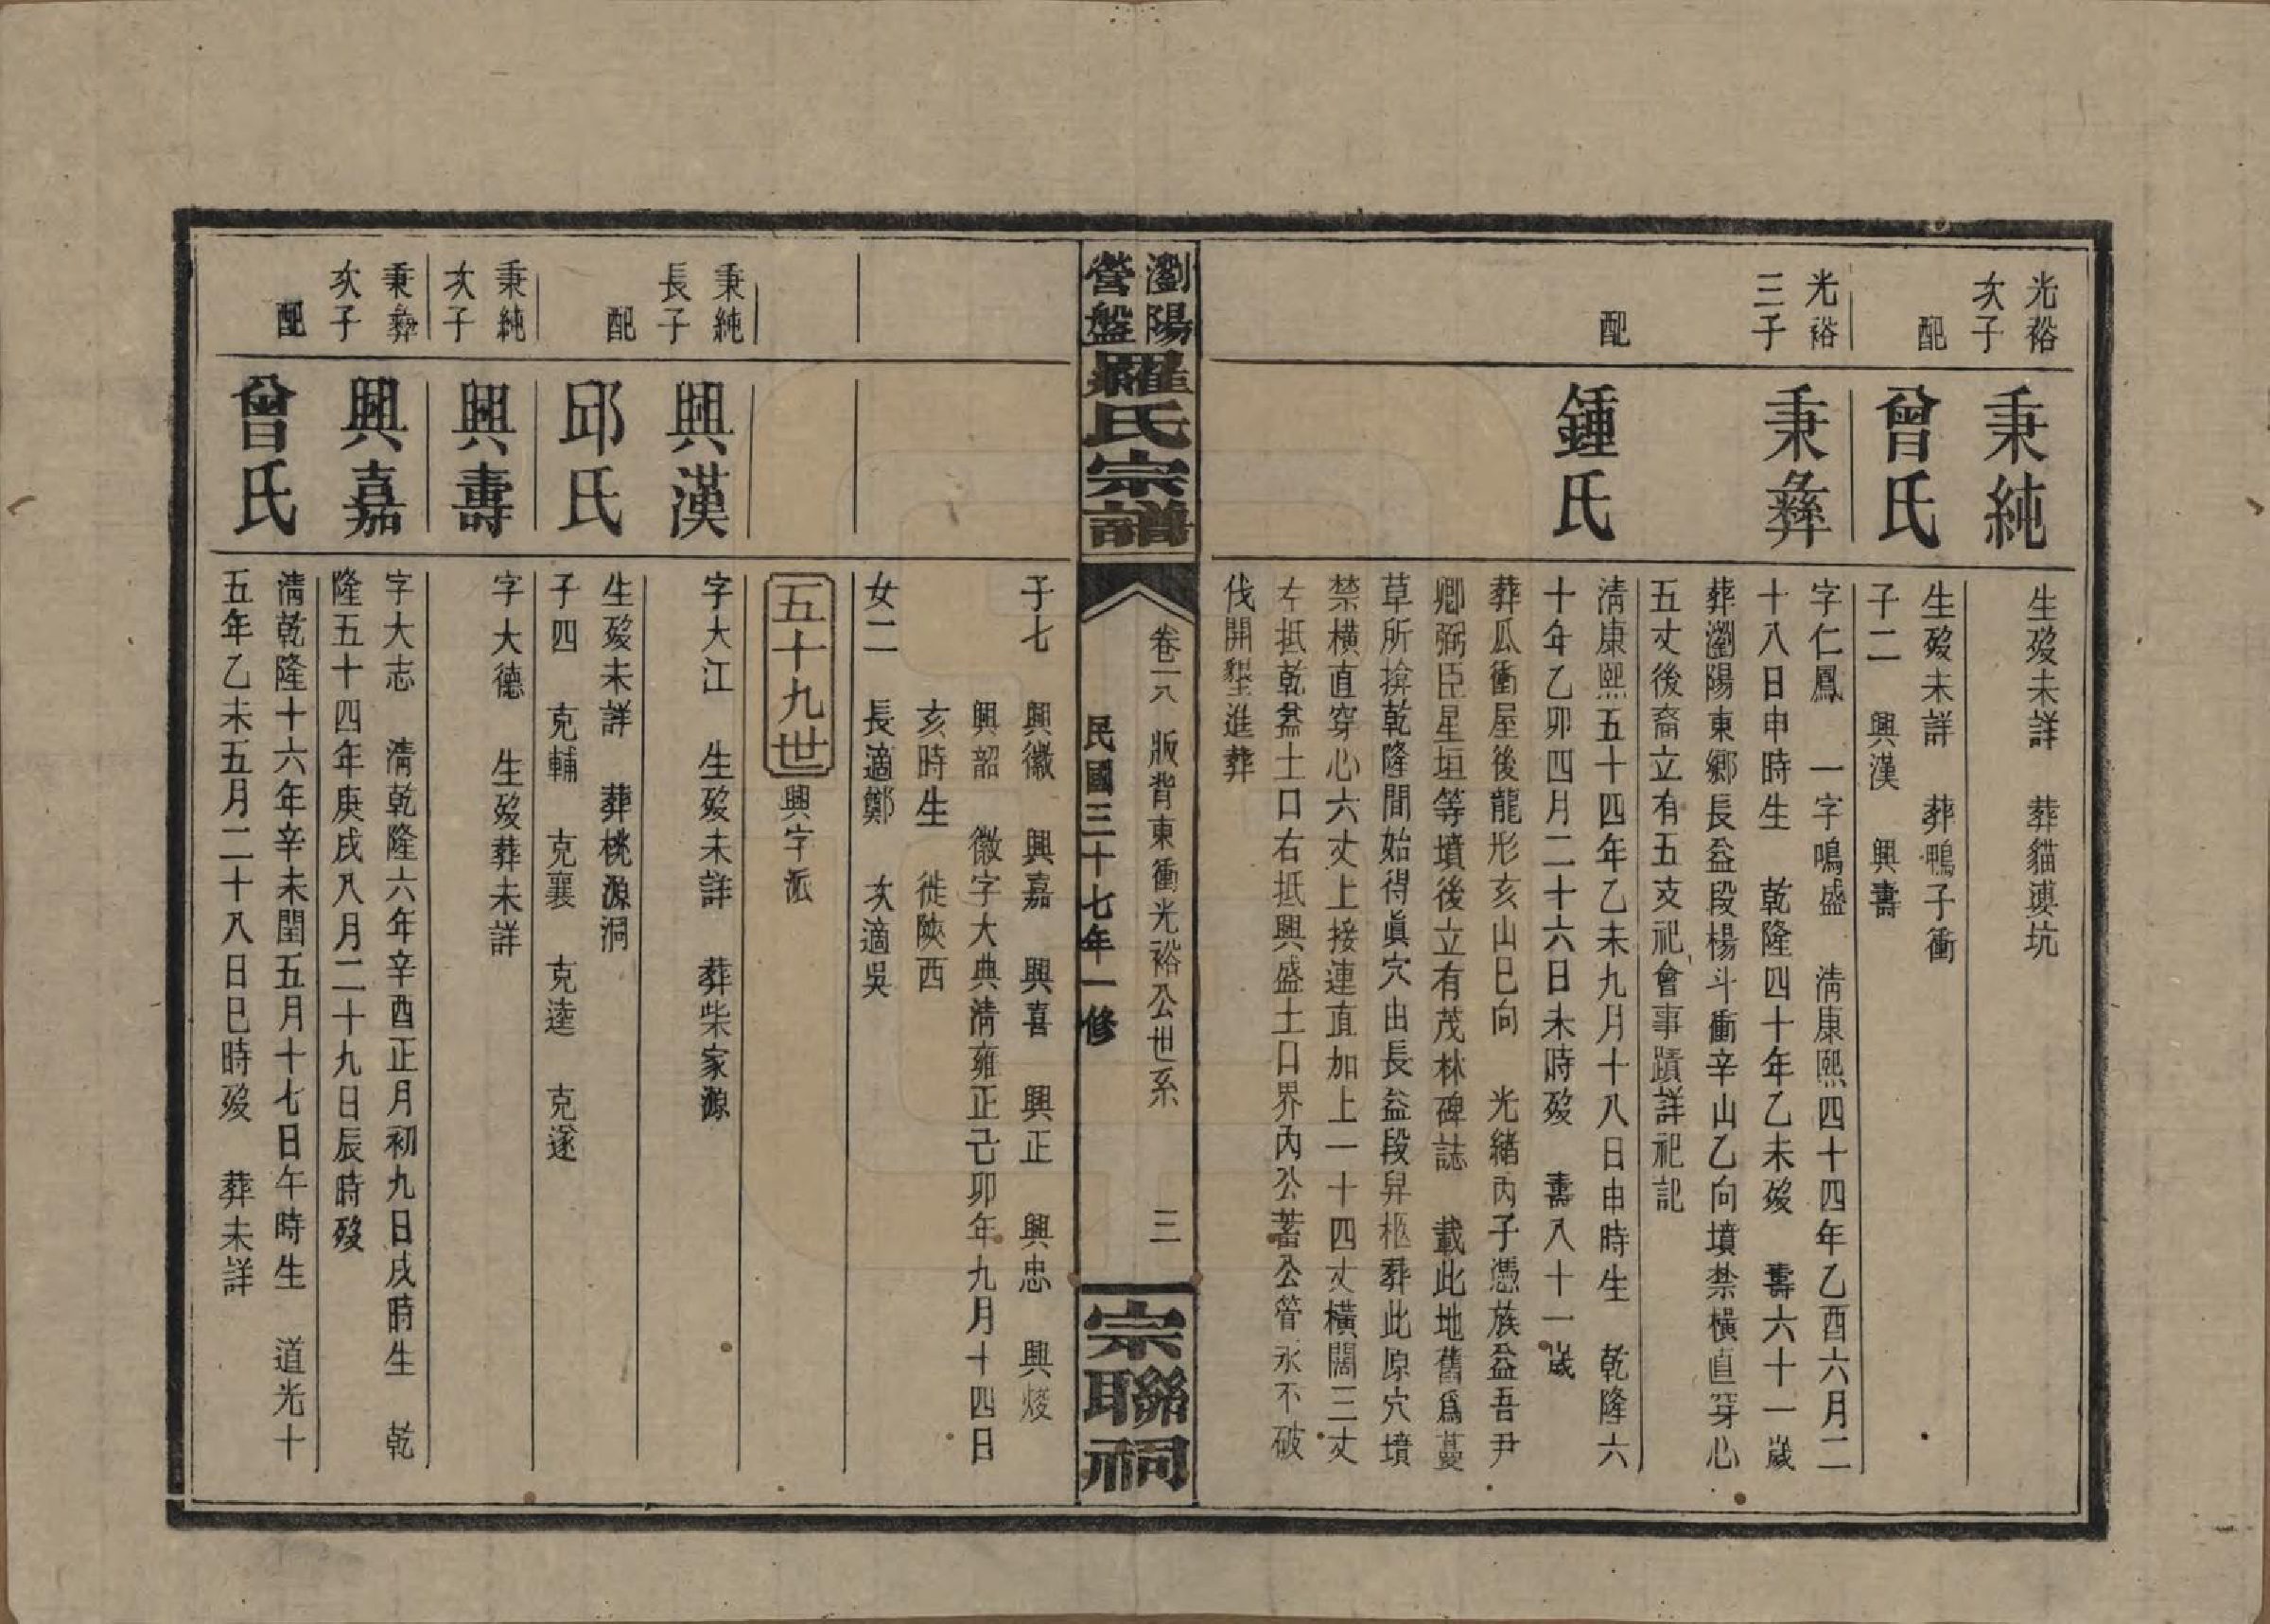 光裕
次子
秉純
生歿未詳　葬貓㙄坑
配
曾氏
生歿未詳　葬鴨子衝
子二　興漢　興壽
光裕
三子
秉彝
字仁鳳　一字鳴盛　清康熙四十四年乙酉六月二
十八日申時生　乾隆四十年乙未歿　壽六十一歲
葬瀏陽東鄉長益段楊斗衝辛山乙向墳禁橫直穿心
五丈後裔立有五支祀會事蹟詳祀記
配
鍾氏
清康熙五十四年乙未九月十八日申時生　乾隆六
十年乙卯四月二十六日未時歿　壽八十一歲
葬瓜衝屋後龍形亥山巳向　光緒丙子憑族益吾尹
卿弼臣星垣等墳後立有茂林碑誌　載此地舊爲蔓
草所揜乾隆間始得眞穴由長益段舁柩葬此原穴墳
禁橫直穿心六丈上接連直加上一十四丈橫闊三丈
左抵乾益土口右抵興盛土口界內公蓄公管永不破
伐開墾進葬
瀏陽
營盤
羅氏宗譜
卷一八　版背東衝光裕公世系　三
民國三十七年一修
宗聯祠
子七　興徽　興嘉　興喜　興正　興忠　興焌
興韶　徽字大典清雍正己卯年九月十四日
亥時生　徙陝西
女二　長適鄭　次適吳
五十九世
興字派
秉純
長子
興漢
字大江　生歿未詳　葬柴家源
配
邱氏
生歿未詳　葬桃源洞
子四　克輔　克襄　克逵　克遂
秉純
次子
興壽
字大德　生歿葬未詳
秉彝
次子
興嘉
字大志　清乾隆六年辛酉正月初九日戌時生　乾
隆五十四年庚戌八月二十九日辰時歿
配
曾氏
清乾隆十六年辛未閏五月十七日午時生　道光十
五年乙未五月二十八日巳時歿　葬未詳